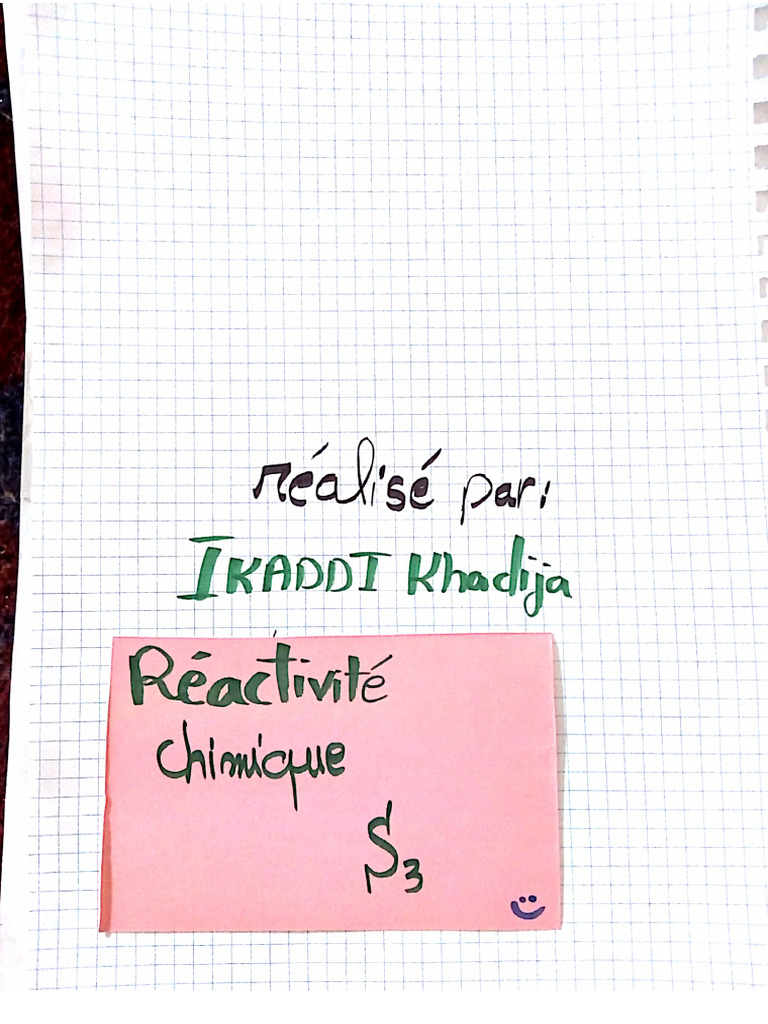 réalisé par:
IKADDI Khadija
Réactivité
chimique
S3